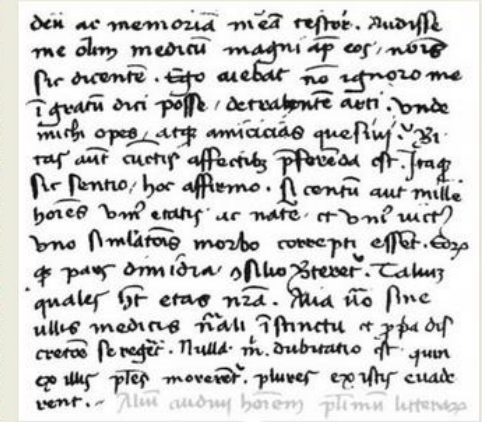 deū ac memoriā m̄eā testor̄. Audisse
me olim medicū magni ap̄ eos / nōis
sic dicentē. Ego aiebat nō ignoro me
īgratū dici posse / detrahentē arti. Vnde
michi opes / atq̃ amicicias quesiui. Ve͛i
tas aūt cūctis affectibꝫ p̄ferēda est. Itaq̃
sic sentio / hoc affirmo. Si centū aut mille
hoīes vnı᷒ etatis ac nat̄e. et vnı᷒ uict᷒
vno simul atōis morbo correpti essēt. Eoꝝ
q̃ pars dimidia ꝯsilio vteret᷑. Taliuꝫ
quales hn̄t etas nr̄a. Alia u̅o sine
ullis medicis n̄ali īstinctu et ꝓpa dis
cretōe se reger̄t. Nulla m̄. dubitatio est quin
ex illis pl̄es morerēt᷑. plures ex istis euade
rent. Aliū audiui hoīem pl̄imū litteraꝝ